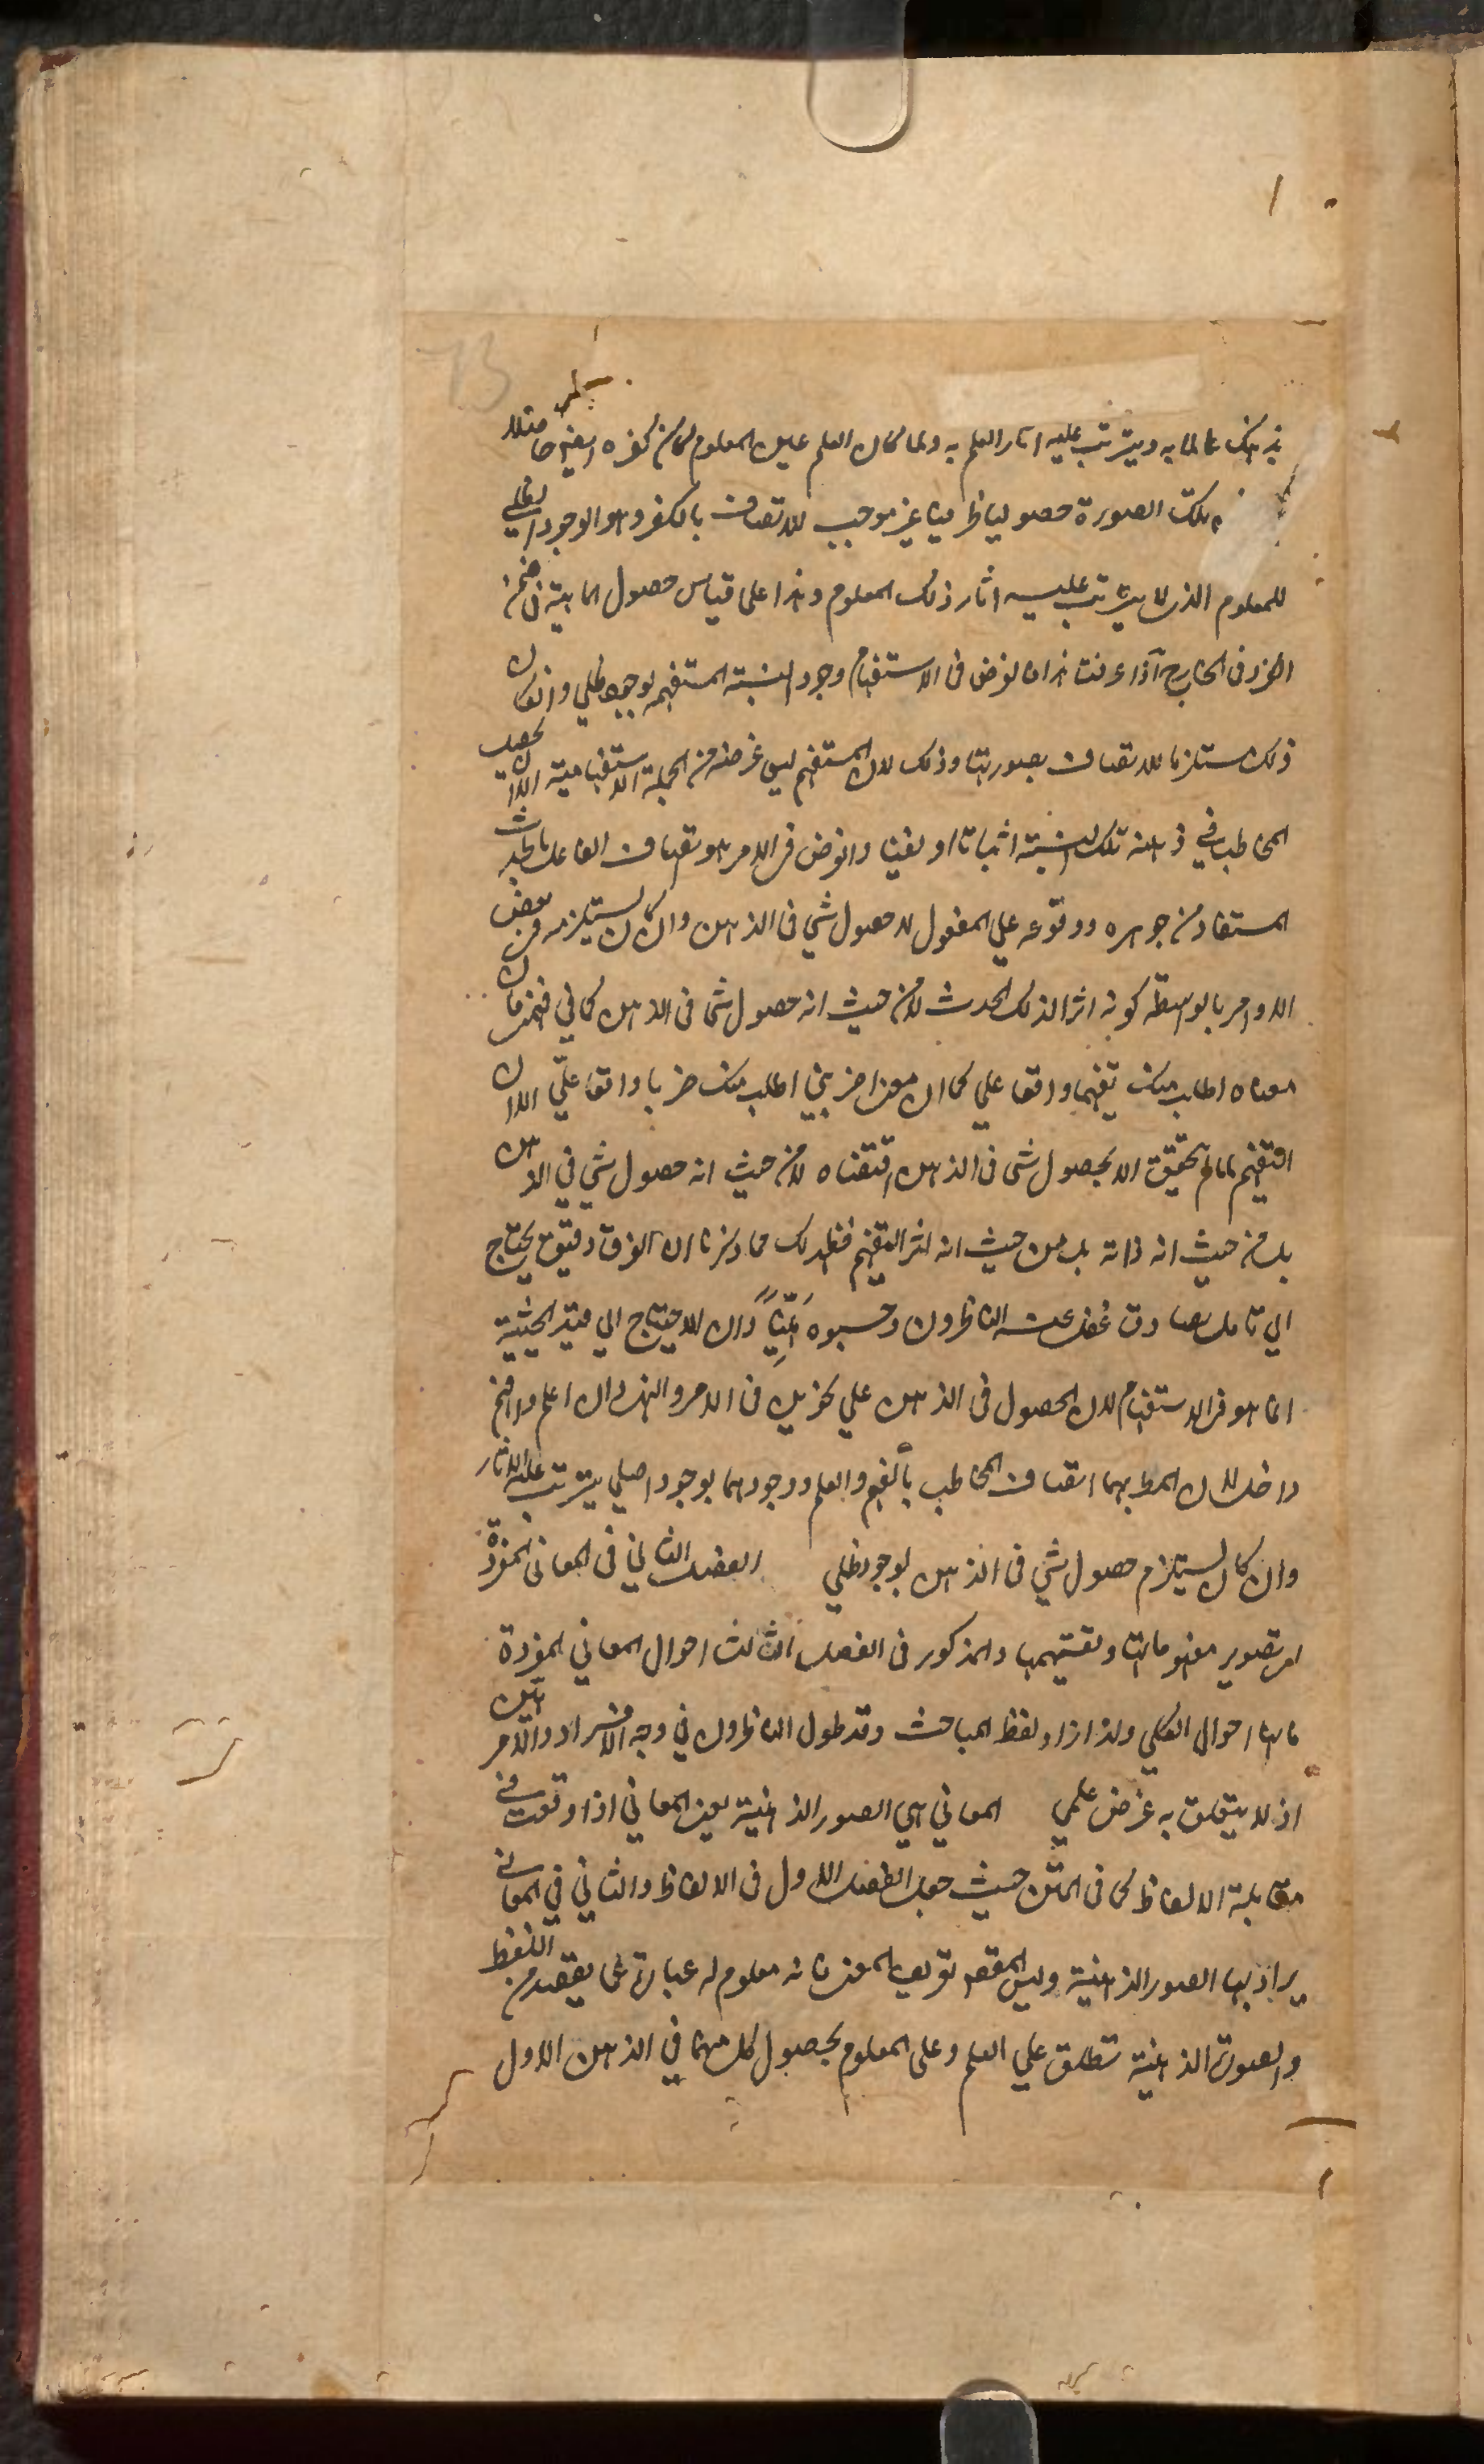 بذهنك عالما به ويترتب عليه اثار العلم به ولما كان العلم عين المعلوم كان كفره ايضا حاصلا
تلك الصورة حصوليا ظليا غير موجب للاتصاف بالكفر وهو الوجود الظلي
للمعلوم الذى لا يترتب عليه اثار ذلك المعلوم وهذا على قياس حصول الماهية فى ضمن
الفرد فى الخارج اذا عرفت هذا فالغرض فى الاستفهام وجود النسبة المستفهمة بوجود ظلي وان كان
ذلك مستلزما للاتصاف بصورتها وذلك لان المستفهم ليس غرضه من الجملة الاستفهامية الا ان يحصل
المخاطب في ذهنه تلك النسبة اثباتا او نفيا والغرض فى الامر هو اتصاف الفاعل بالحدث
المستفاد من جوهره ووقوعه علي المفعول لا حصول شي فى الذهن وان كان يستلزمه فى بعض
الاوامر بالواسطة كونه اثرا لذلك الحدث لا من حيث انه حصول شي فى الذهن كما في فهمنى فان
معناه اطلب منك تفهيما واقعا علي كما ان معنى اضربني اطلب منك ضربا واقعا علَيّ الا ان
التفهيم لما لم يتحقق الا بحصول شى فى الذهن اقتضاه لا من حيث انه حصول شي في الذهن
بل من حيث انه ذاته بل من حيث انه اثر التفهيم فظهر لك مما ذكرنا ان الفرق دقيق يحتاج
الي تامل صادق غفل عنه الناظرون وحسبوه هينا وان الاحتياج الي قيد الحيثية
انما هو فى الاستفهام لان الحصول فى الذهن علي نحوين فى الامر والنهى وان اعلم وافهم
داخل لان المط بهما اتصاف المخاطب بالفهم والعلم ووجودهما بوجود اصلي يترتب عليه الاثار
وان كان يستلزم حصول شي فى الذهن بوجود ظلي الفصل الثاني فى المعانى المفردة
اى تصوير مفهوماتها وتقسيمها والمذكور فى الفصل الثالث احوال المعاني المفردة
فانها احوال الكلي ولذا زاد لفظ المباحث وقد طول الناظرون في وجه الافراد والامر هين
اذ لا يتعلق به غرض علمي المعاني هي الصور الذهنية يعنى المعاني اذا وقعت في
مقابلة الالفاظ كما فى المتن حيث جعل الفصل الاول فى الالفاظ والثاني في المعاني
يراد بها الصور الذهنية وليس المقصد تعريف المعنى فانه معلوم له عبارة عما يقصد من اللفظ
والصورة الذهنية تطلق علي العلم وعلى المعلوم بحصول كل منهما في الذهن الاول